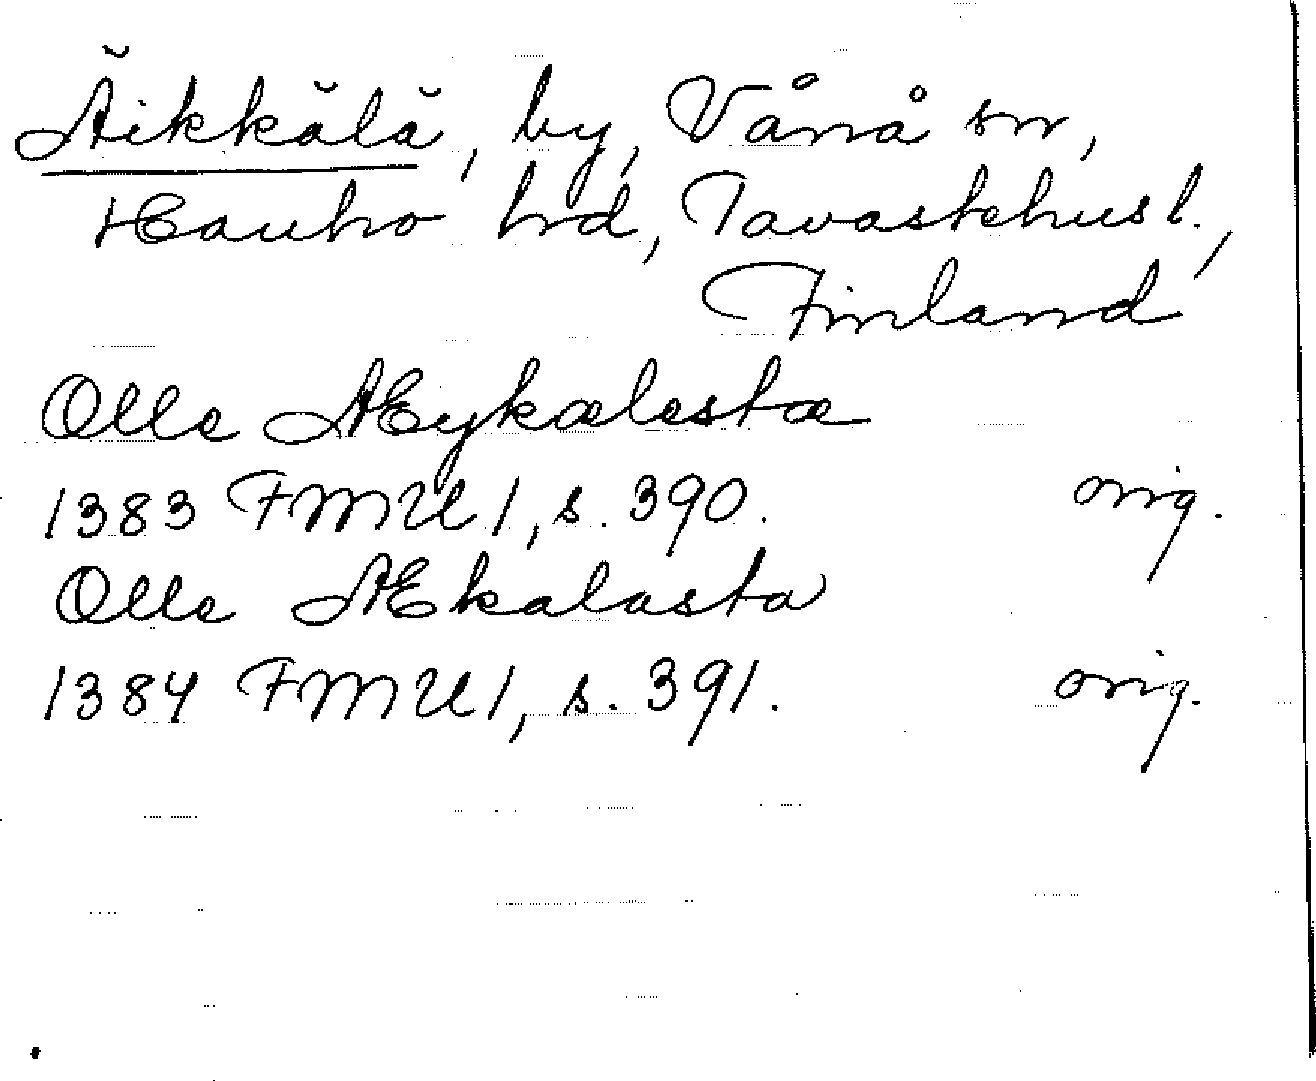 Äikkälä, by, Vånå sn,
Hauho hd, Tavastehus l.,
Finland
Olle Æykælestæ
1383 FMU 1, s. 390. orig.
Olle Ækalasta
1384 FMU 1, s. 391. orig.